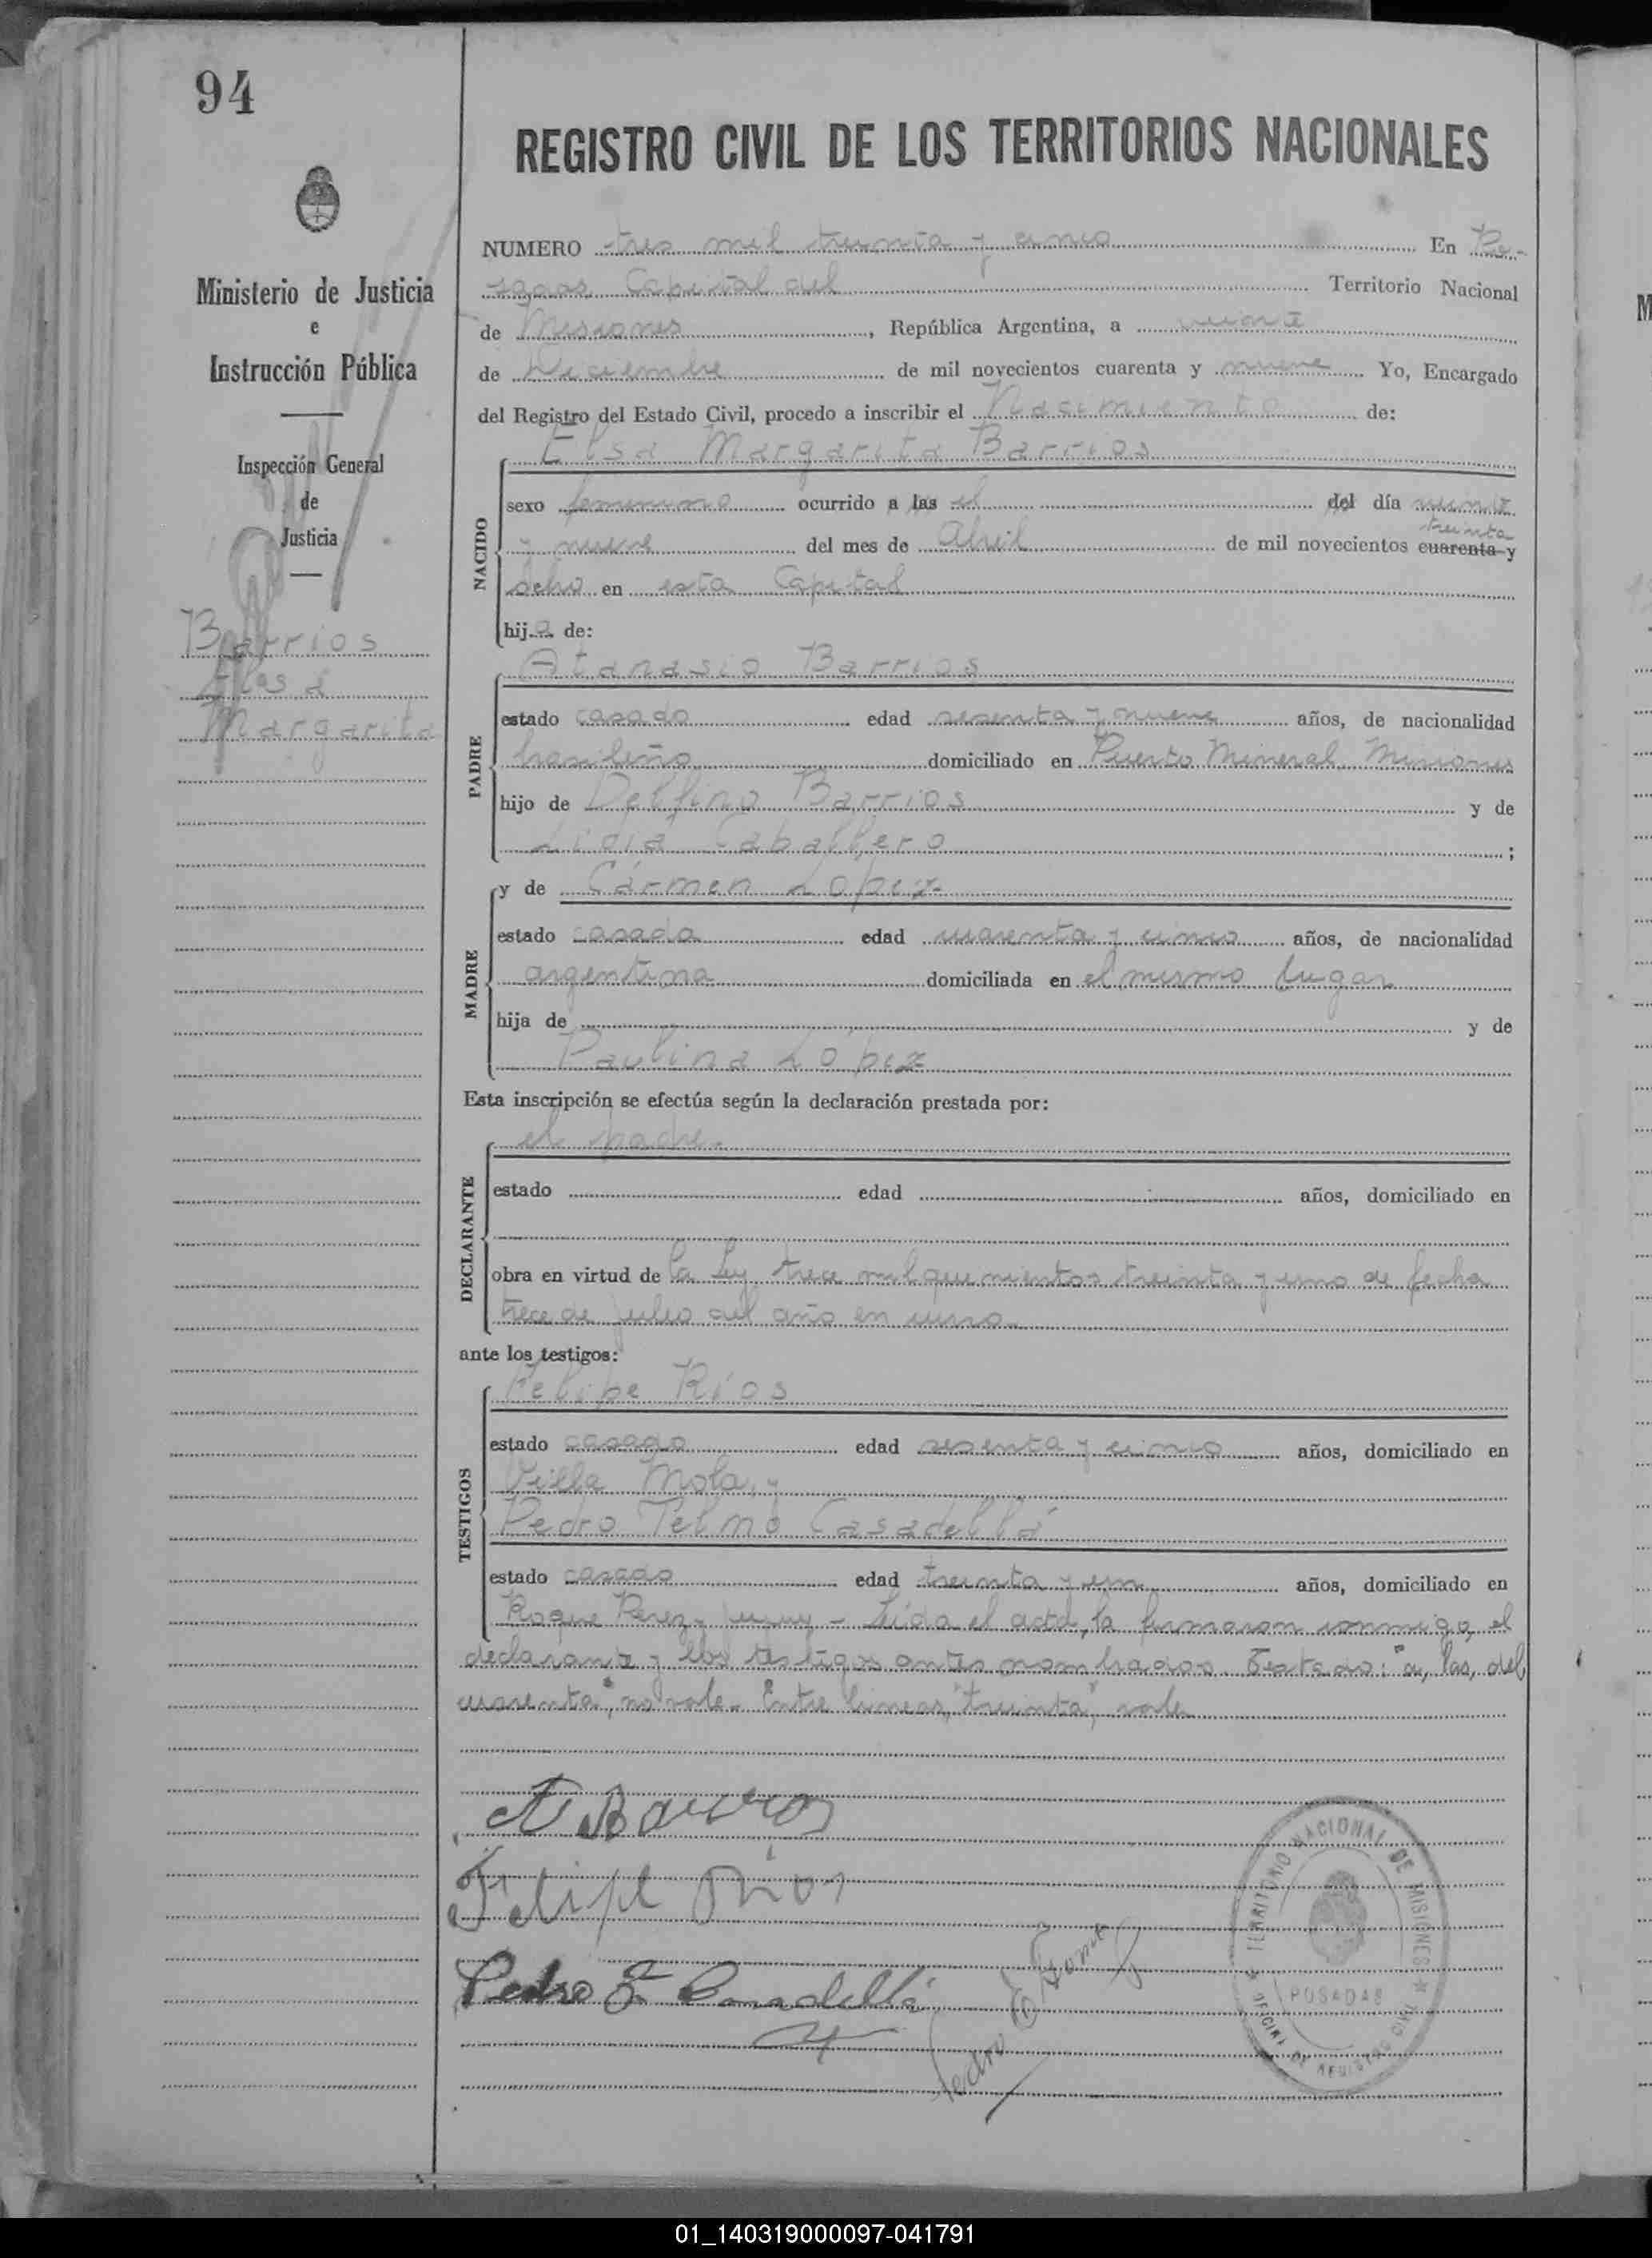 94
REGISTRO CIVIL DE LOS TERRITORIOS NACIONALES
Ministerio de Justicia
e
Instrucción Pública
Inspección General
de
Justicia
Barrios
Elsa
Margarita
NUMERO tres mil treinta y cinco En Po-
sadas Capital del Territorio Nacional
de Misiones, República Argentina, a veinte
de Diciembre de mil novecientos cuarenta y nueve Yo, Encargado
del Registro del Estado Civil, procedo a inscribir el Nacimiento de:
Elsa Margarita Barrios
NACIDO
sexo femenino ocurrido a las el del día veinte
treinta
y nueve del mes de Abril de mil novecientos cuarenta y
ocho en esta Capital
hija de:
Atanasio Barrios
PADRE
estado casado edad sesenta y nueve años, de nacionalidad
brasileño domiciliado en Puerto Mineral Misiones
hijo de Delfino Barrios y de
Lidia Caballero ;
y de Cármen López
MADRE
estado casada edad cuarenta y cinco años, de nacionalidad
argentina domiciliada en el mismo lugar
hija de y de
Paulina López
Esta inscripción se efectúa según la declaración prestada por:
el padre.
DECLARANTE
estado edad años, domiciliado en
obra en virtud de la Ley trece mil quinientos treinta y uno de fecha
trece de julio del año en curso.
ante los testigos:
Felipe Ríos
TESTIGOS
estado casado edad sesenta y cinco años, domiciliado en
Villa Mola, y
Pedro Telmo Casadellá
estado casado edad treinta y un años, domiciliado en
Roque Perez y Jujuy - Leída el acta, la firmaron conmigo, el
declarante y los testigos antes nombrados. Testado: "a, las, del,
cuarenta", no vale. Entre lineas, "treinta", vale
A Barrios
Felipe Rios
Pedro T. Casadellá
Pedro
TERRITORIO NACIONAL DE MISIONES
POSADAS
OFICINA DE REGISTRO CIVIL
01_140319000097-041791